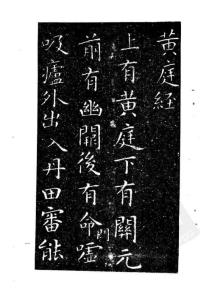 黃庭經
上有黃庭下有關元
前有幽闕後有命
嘘吸廬外出入丹田審能